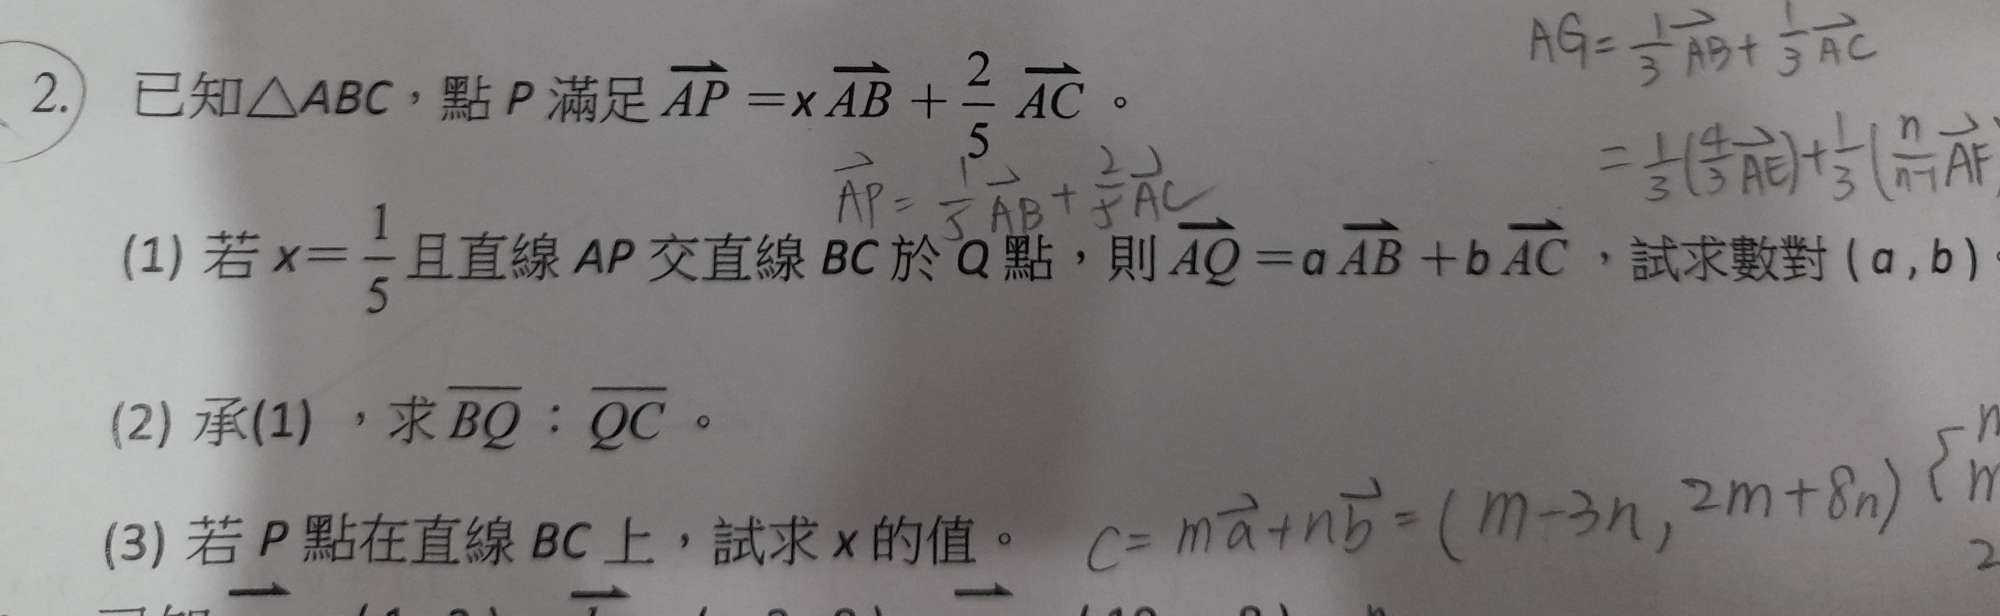 AG = 1/3 AB + 1/3 AC
2. 已知△ABC，點 P 滿足 AP = x AB + 2/5 AC。
= 1/3 (4/3 AE) + 1/3 (n/n-1 AF)
AP = 1/5 AB + 2/5 AC
(1) 若 x = 1/5 且直線 AP 交直線 BC 於 Q 點，則 AQ = a AB + b AC，試求數對 ( a , b )。
(2) 承(1) ，求 BQ : QC。
(3) 若 P 點在直線 BC 上，試求 x 的值。
C = ma + nb = (m-3n, 2m+8n)